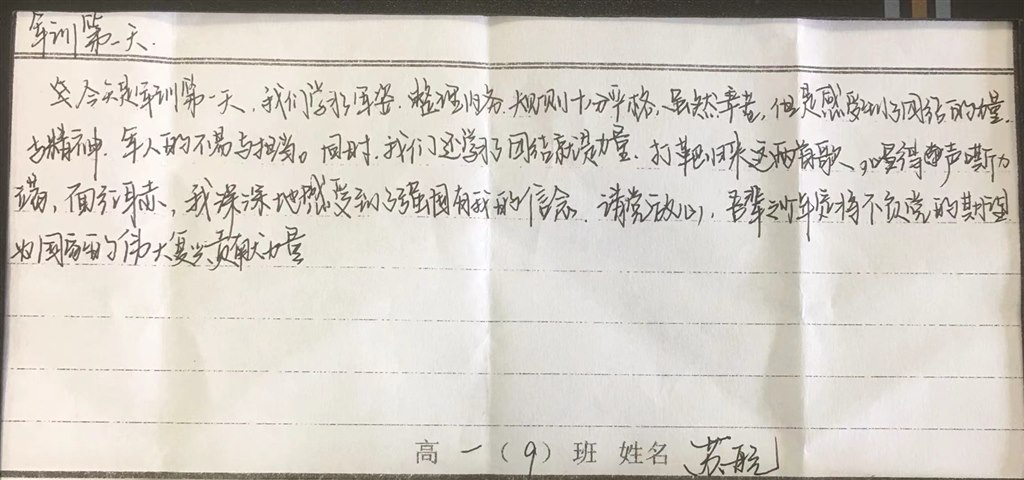 军训第一天.
今天是军训第一天,我们学习军姿.整理内务.规则十分严格,虽然辛苦,但是感受到了团结的力量.
与精神.军人的不易与担当。同时.我们还学习了团结就是力量.打靶归来这两首歌、唱得声嘶力
竭,面红耳赤,我深深地感受到了强国有我的信念.请党放心,吾辈少年定将不负党的期望
为国家的伟大复兴贡献力量
高一(9)班 姓名 苏航